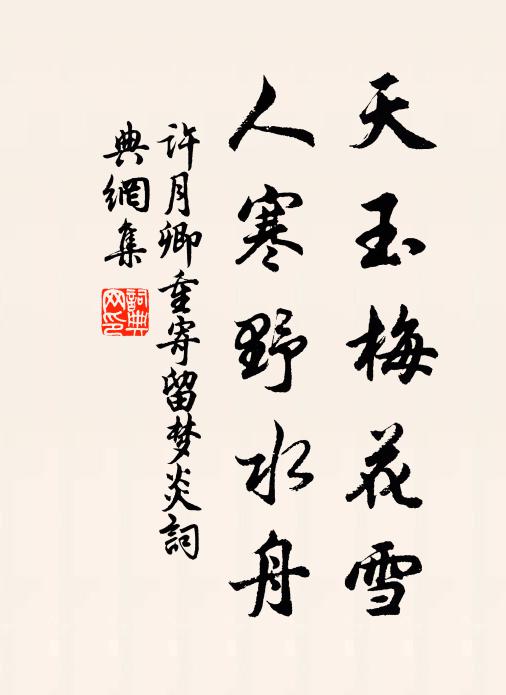 天玉梅花雪
人寒野水舟
許月卿重寄留梦炎詞
典網集
詞典
网印